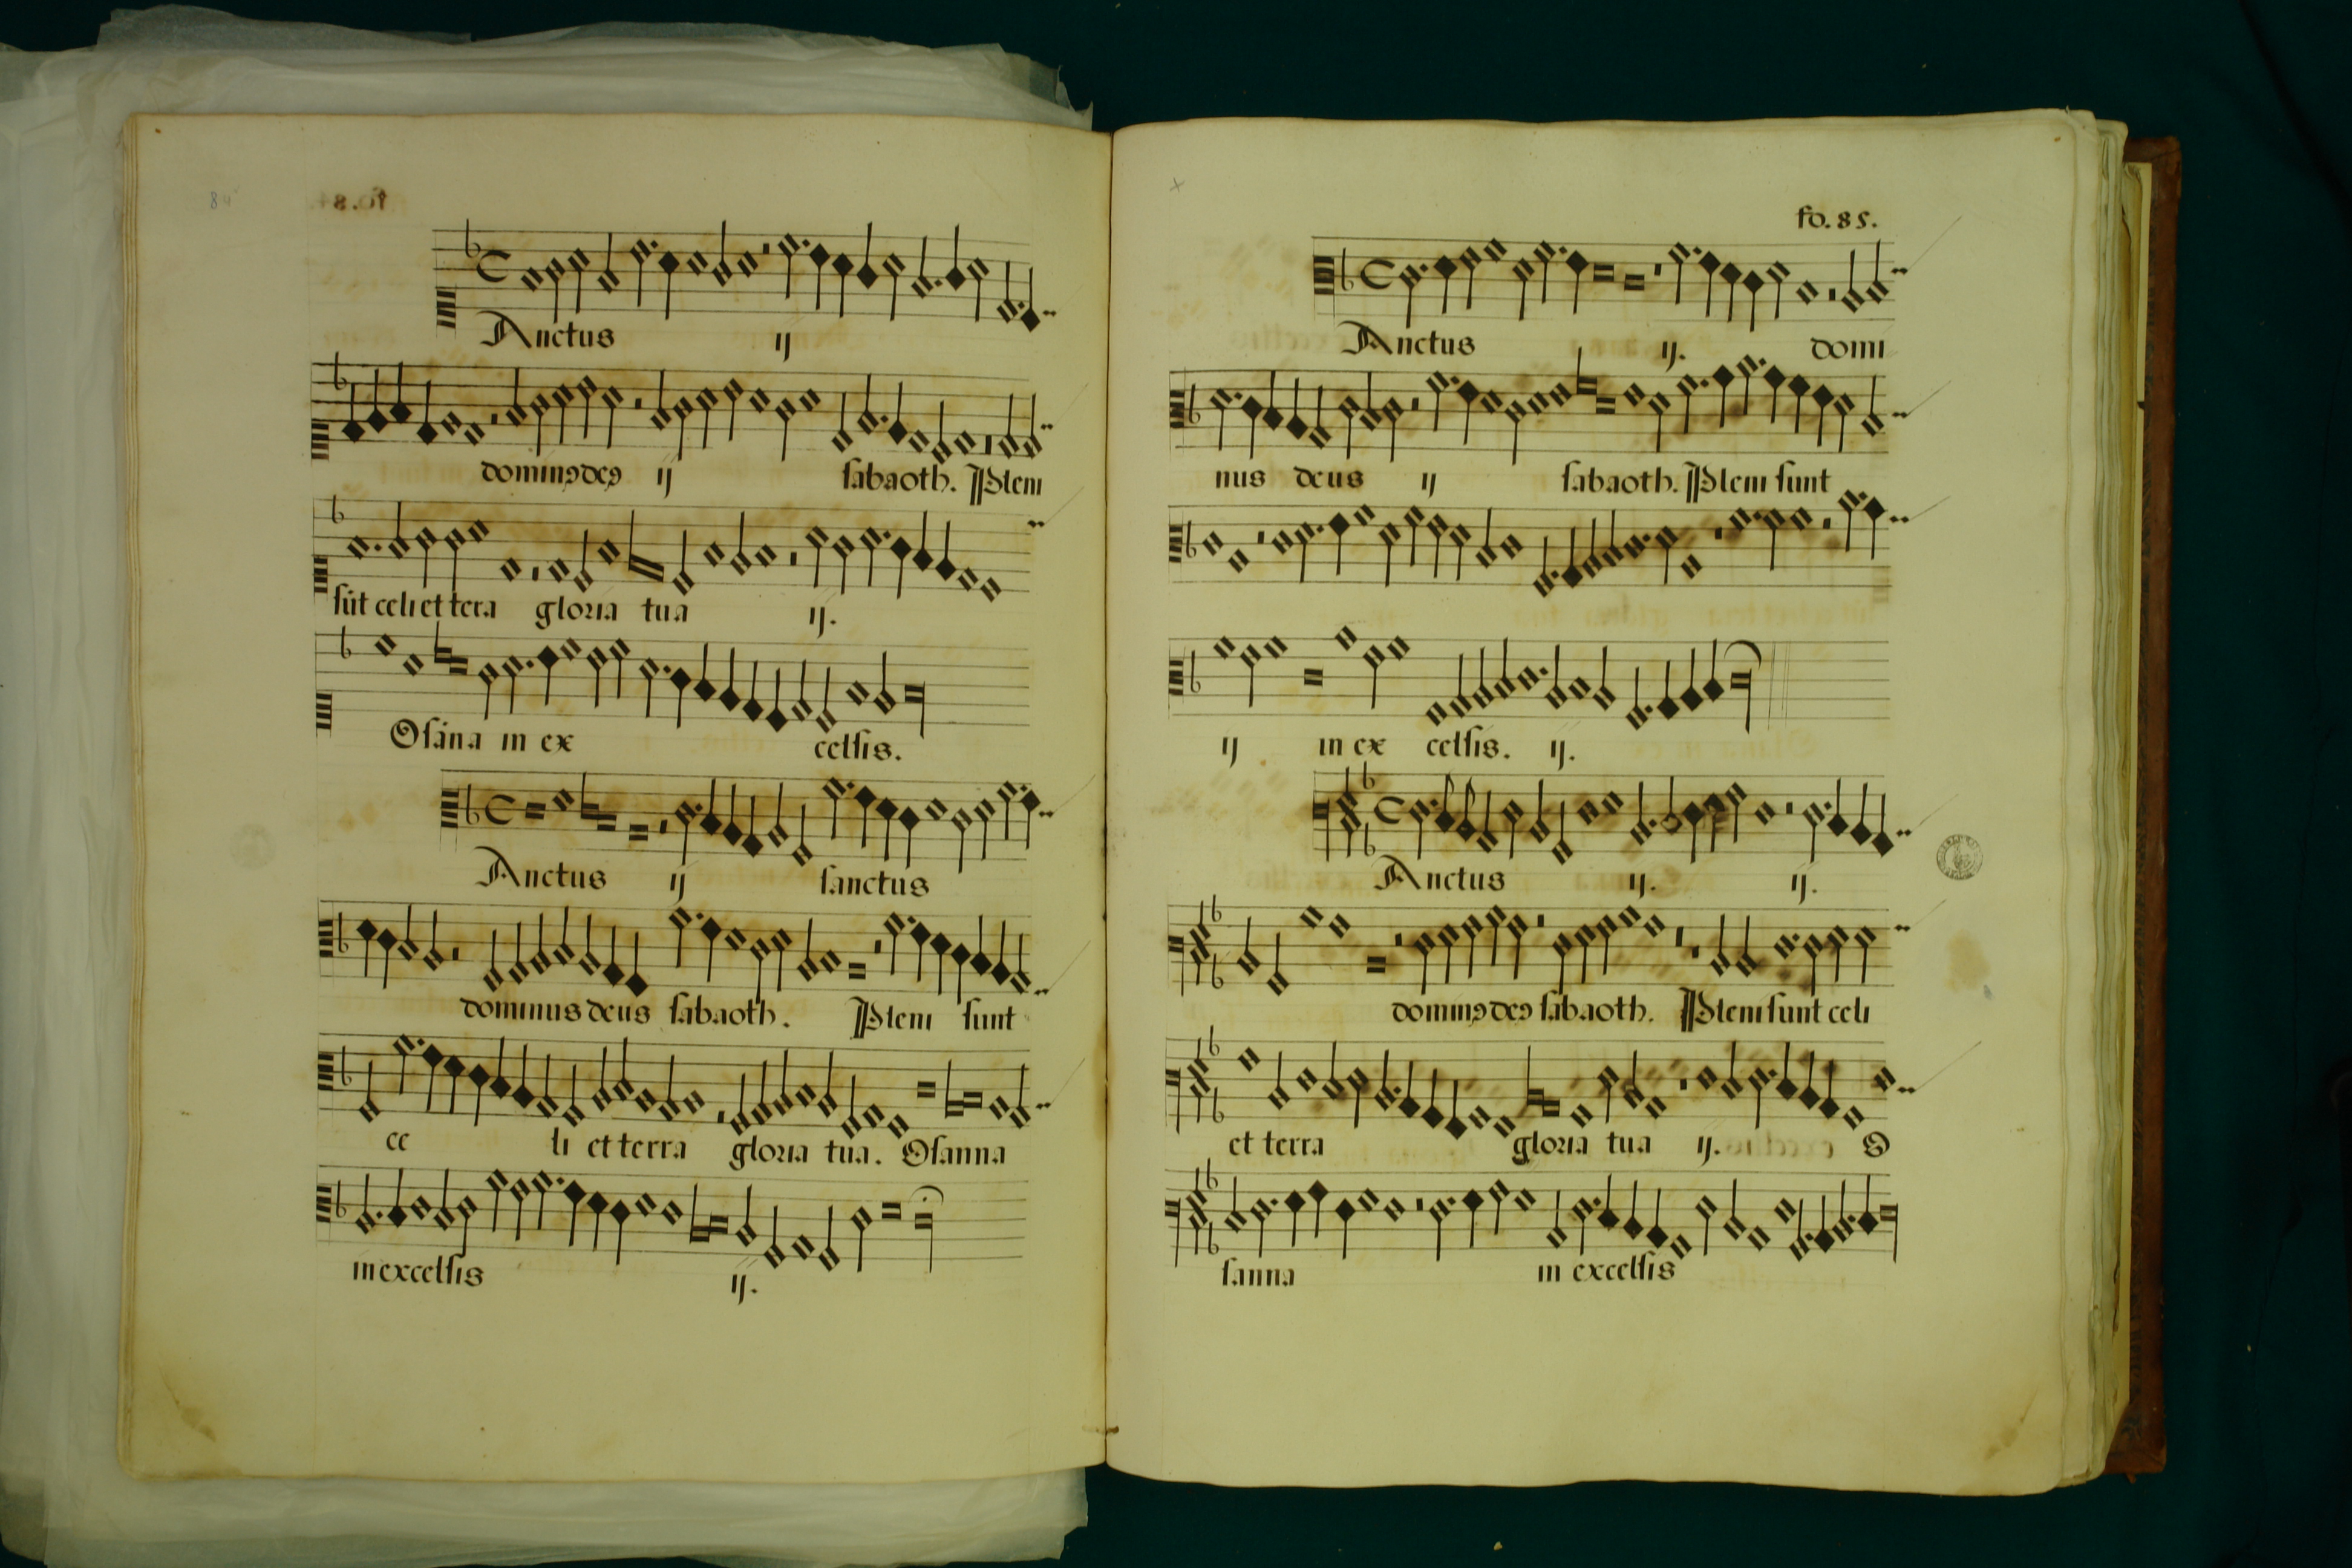 84
Anctus ij
dominꝯ deꝯ ij sabaoth. Pleni
sūt celi et tera gloria tua ij.
Osāna in ex celsis.
Anctus ij sanctus
dominus deus sabaoth. Pleni sunt
ce li et terra gloria tua. Osanna
in excelsis ij.
fo. 85.
Anctus ij. domi
nus deus ij sabaoth. Pleni sunt
ij in ex celsis. ij.
Anctus ij. ij.
dominꝯ deꝯ sabaoth. Pleni sunt celi
et terra gloria tua ij. O
sanna in excelsis